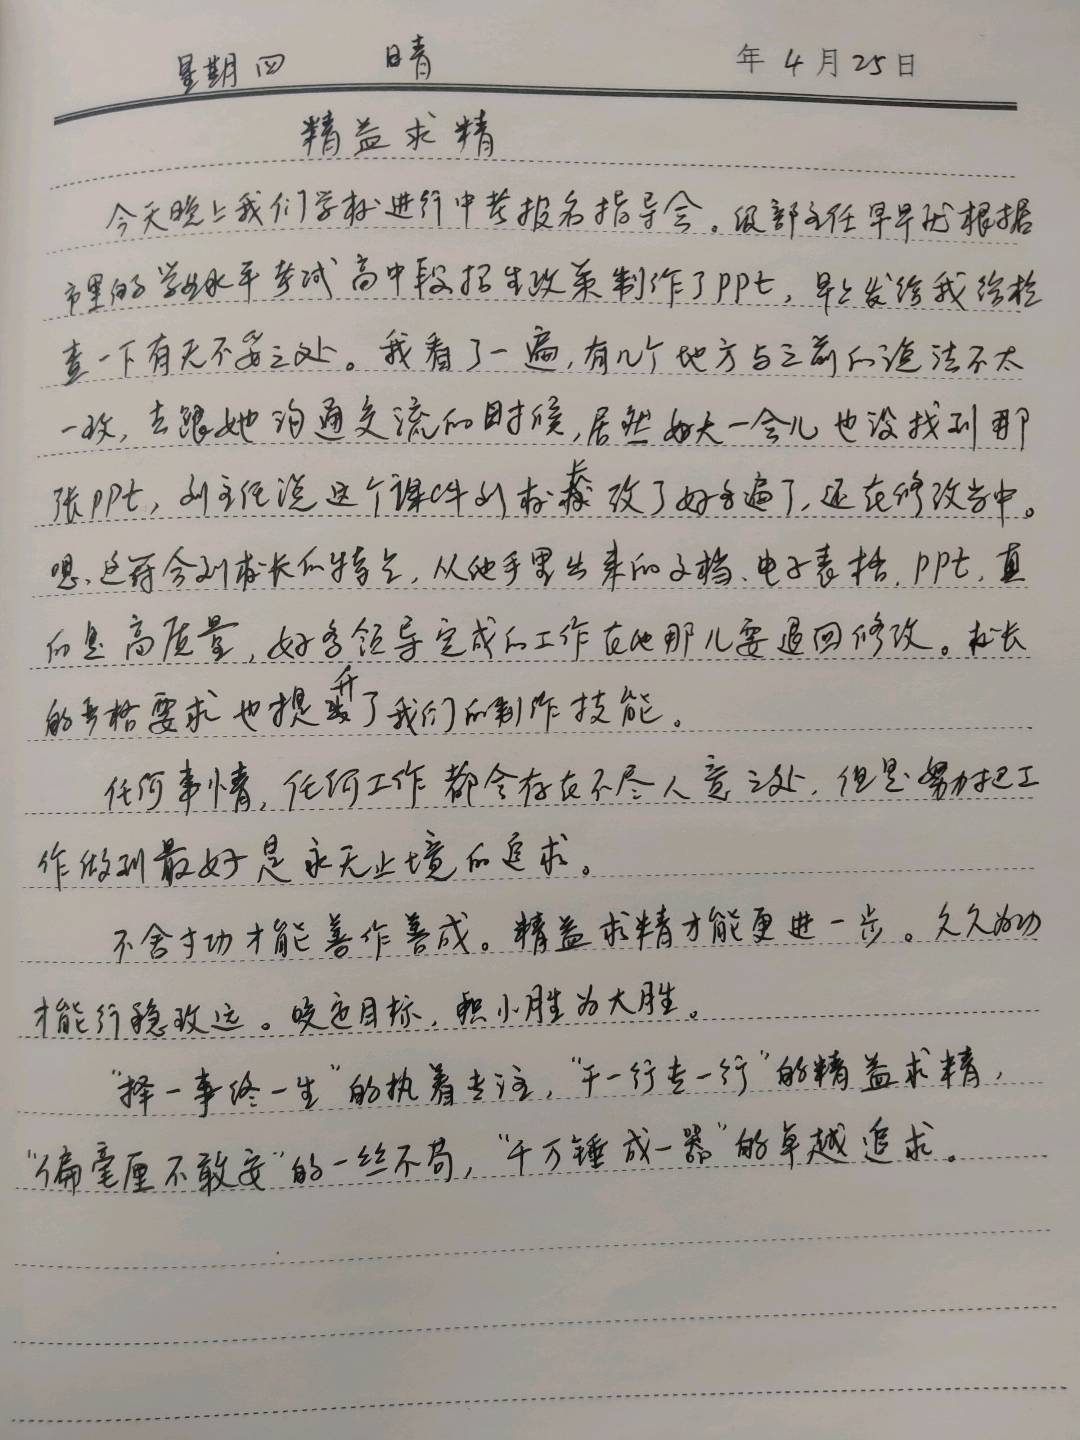 星期四 晴 年4月25日
精益求精
今天晚上我们学校进行中考报名指导会。级部主任早早就根据
市里的学业水平考试高中段招生政策制作了PPt，早上发给我给检
查一下有无不妥之处。我看了一遍，有几个地方与之前的说法不太
一致，去跟她沟通交流的时候，居然好大一会儿也没找到那
张PPt，刘主任说这个课件刘校长改了好多遍了，还在修改当中。
嗯、这符合刘校长的特点，从他手里出来的文档、电子表格，PPt，真
的是高质量，好多领导完成的工作在他那儿要退回修改。校长
的严格要求也提升了我们的制作技能。
任何事情，任何工作都会存在不尽人意之处，但是努力把工
作做到最好是永无止境的追求。
不舍寸功才能善作善成。精益求精才能更进一步。久久为功
才能行稳致远。咬定目标，积小胜为大胜。
“择一事终一生”的执着专注，“干一行专一行”的精益求精，
“偏毫厘不敢安”的一丝不苟，“千万锤成一器”的卓越追求。